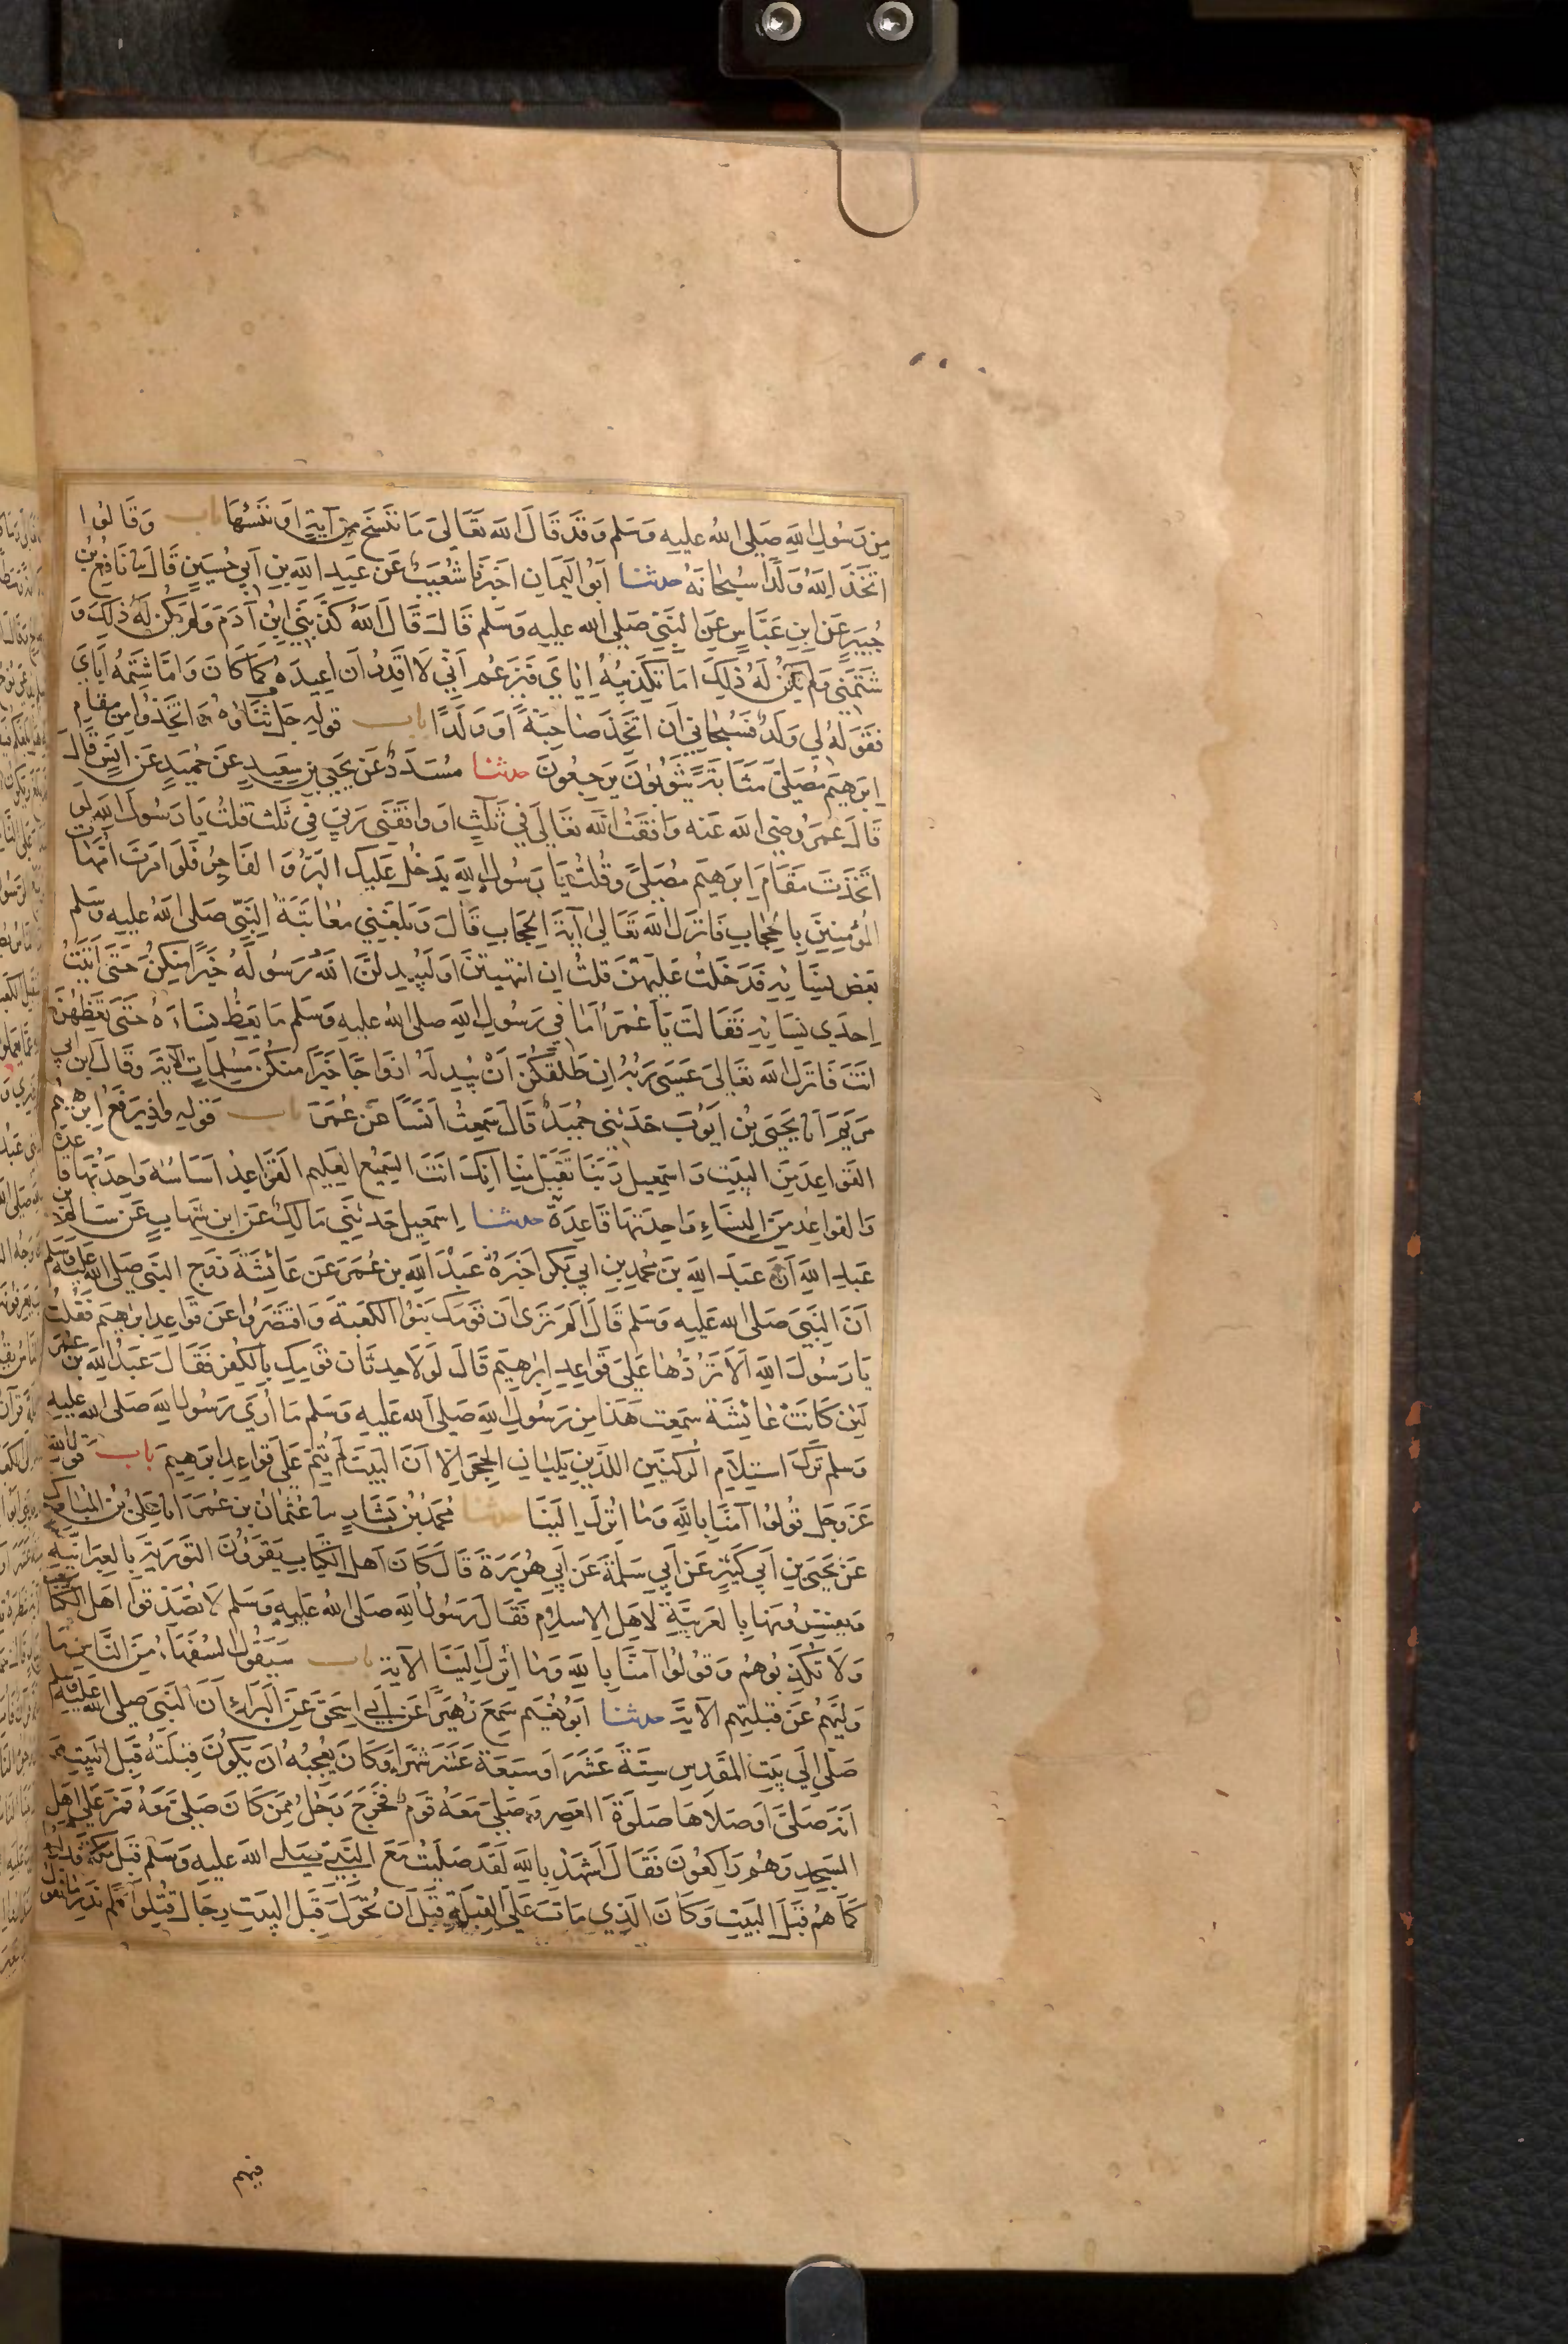 مِن رَسُولِ اللهِ صَلَّى اللهُ عليه وَسَلم وَقَد قَالَ الله تَعَالَى مَا نَنسَخ مِن آيَةٍ اَو نَنسَهَا باب وَقَالُوا
اتَّخَذَ اللهُ وَلَدًا سُبْحَانَهُ حدثنا اَبُو اليَمَانِ اَخبَرَنَا شُعَيبٌ عَن عَبدِ اللهِ بنِ اَبِي حُسَينٍ قَالَ نا نَافِعُ بنُ
جُبَيرٍ عَنِ ابنِ عَبَّاسٍ عَنِ النَّبِيِّ صَلى الله عليه وَسَلم قَالَ قَالَ اللهُ كَذَّبَنِي ابنُ آدَمَ وَلَم يَكُن لَهُ ذلِكَ وَ
شَتَمَنِي وَلَم يَكُن لَهُ ذلِكَ اَمَا تَكذِيبُهُ اِيَّايَ فَيَزعُم اَنِّي لَا اَقدِرُ اَن اُعِيدَهُ كَمَا كَانَ وَاَمَّا شَتمُهُ اِيَّايَ
فَقَولهُ لِي وَلَدٌ فَسُبحَانِي اَن اَتَّخِذَ صَاحِبَةً اَو وَلَدًا باب قوله جَل ثَنَاؤهُ وَاتَّخَذُوا مِن مقَامِ
اِبرهِيم مُصَلى مَثَابَةً يَثُوبُونَ يَرجِعُونَ حدثنا مُسَدَّدٌ عَن يَحيَى بن سَعِيدٍ عَن حُمَيدٍ عَن اَنَسٍ قَالَ
قَالَ عُمَرُ رضى الله عَنه وَافَقتُ الله تعَالَى فِي ثَلثٍ اَو وَافَقَنِي رَبِّي فِي ثَلث قلتُ يَا رَسُولَ اللهِ لَو
اتَّخَذتَ مَقَامَ اِبرَهِيم مُصَلىً وَقُلتُ يَا رَسُولَ اللهِ يَدخُلُ عَلَيكَ البَرُّ وَالفَاجِرُ فَلَو اَمَرتَ اُمَّهَاتِ
المُؤمِنِينَ بِالحِجَابِ فَاَنزَلَ الله تَعَالى آيَةَ الحِجَابِ قَالَ وَبَلَغَنِي مُعَاتَبَةُ النَّبِيِّ صَلى اللهُ عَليه وَسَلم
بَعض نِسَائِهِ فَدَخَلتُ عَلَيهِنَّ قلتُ اِن انتَهَيتنَّ اَو لَيُبدِلَنَّ اللهُ رَسُولَهُ خَيرًا مِنكُنَّ حَتَّى اَتَيتُ
اِحدَى نِسَائِهِ فَقَالَت يَا عُمَرُ اَمَا فِي رَسُولِ اللهِ صلى الله عليه وَسَلم مَا يَعِظُ نِسَاءَهُ حَتَّى تَعِظَهُنَّ
اَنتَ فَانزَلَ الله تَعَالىَ عَسَى رَبُّهُ اِن طَلَّقَكُنَّ اَنْ يُبدِلَهُ اَزوَاجًا خَيرًا مِنكُنَّ مُسلِمَاتٍ الآيةَ وَقَالَ ابن اَبِي
مَريَمَ اَنا يَحيَى بن اَيُّوبَ حَدَّثَنِي حُمَيدٌ قَالَ سَمِعتُ اَنَسًا عَن عُمَرَ باب قَوله وَاِذ يَرفَعُ ابرهيم
القَوَاعِدَ مِنَ البَيتِ وَاسمعِيل رَبَّنَا تَقَبَّل مِنَّا اِنَّكَ اَنتَ السَّمِيع العَلِيم القَوَاعِدُ اَسَاسُهُ وَاحِدَتُهَا قَاعِدَةٌ
وَالقوَاعِد مِنَ النِّسَاءِ وَاحِدَتهَا قَاعِدَةٌ حدثنا اِسمَعِيل حَدثَنِي مَالِكٌ عَن ابنِ شِهَابٍ عَن سَالِم بن
عَبدِ اللهِ اَنَّ عَبدَ اللهِ بنَ مُحمدِ بنِ ابِي بَكر اَخبَرَهُ عَبْدَ اللهِ بن عُمَرَ عَن عَائِشَةَ زَوجِ النَّبِيِ صَلى الله عَليه وَسَلم
اَنَّ النَّبِيَ صَلى الله عَلَيهِ وَسَلم قَالَ اَلَم تَرَى اَن قَومَكِ بَنَوُا الكَعبَةَ وَاقتَصَرُوا عَن قَوَاعِدِ ابرهِيمَ فَقُلتُ
يَا رَسُولَ اللهِ اَلَا تَرُدُّهَا عَلَى قَوَاعِدِ اِبرهِيم قَالَ لَولَا حِدثَان قَومِكِ بِالكُفر فَقَالَ عَبدُ اللهِ بنُ عُمَرَ
لَئِن كَانَتْ عَائِشَةَ سَمِعَت هَذَا مِن رَسُولِ اللهِ صَلى الله عَليه وَسَلم مَا اُرَى رَسُولَ اللهِ صَلى الله عَليه
وَسلم تَرَكَ استِلَامِ الرُّكنَينِ اللَّذَينِ يَلِيَانِ الحِجرَ اِلَّا اَنَّ البَيتَ لَم يُتَمَّ عَلَى قَوَاعِدِ ابرَهِيمَ باب قَولِهِ
عَزَّ وَجَل قُولُوا آمَنَّا بِاللهِ وَمَا اُنزِلَ اِلَينَا حدثنا مُحَمَّدُ بنُ بَشَّارٍ نا عُثمَانُ بن عُمَرَ انا عَلِيُّ بنُ المُبَارَكِ
عَن يَحيَى بنِ اَبِي كَثِيرٍ عَن اَبِي سَلَمَةَ عَن اَبِي هُرَيرَةَ قَالَ كَانَ اَهلُ الكِتَابِ يَقرَؤُنَ التَّورَيةَ بِالعِبرَانِيَّةِ
وَيُفَسِّرُونَهَا بِالعَرَبِيَّةِ لاَهلِ الاِسلام فَقَالَ رَسُولُ اللهِ صَلى اللهُ عَليهِ وَسَلم لَا تُصَدِّقُوا اَهلَ الكِتَابِ
وَلَا تُكَذِّبُوهُم وَقُولُوا آمَنَّا بِاللهِ وَمَا اُنزِلَ اِلَينَا الآيَة باب سَيَقُولُ السُّفَهَاءُ مِنَ النَّاسِ مَا
وَلَّيهُم عَن قِبلَتِهِم الآيَةَ حدثنا اَبُو نُعَيم سَمِعَ زُهَيرًا عَن اَبِي اِسحَقَ عَنِ البَرَاءِ اَنَّ النَّبِيَ صَلى الله عَليه وسلم
صَلَّى اِلَى بَيتِ المَقدِسِ سِتَّةَ عَشَرَ اَو سَبعَةَ عَشَرَ شَهرًا وَكَانَ يُعجِبُهُ اَن يَكُونَ قِبلَتُهُ قِبَلَ البَيتِ وَ
اَنَّهُ صَلىَّ اَو صَلاهَا صَلَوةَ العَصر وَصَلىَ مَعَهُ قَومٌ فَخَرَجَ رَجُلٌ مِمَّن كَانَ صَلى مَعَهُ فَمَرَّ عَلَى اَهل
المسجِدِ وَهُم رَاكِعُونَ فَقَالَ اَشهَدُ بِاللهِ لَقَد صَلَّيتُ مَعَ النَّبِيّ صلى الله عَليه وَسَلم قِبَلَ مَكَّةَ فَدَارُوا
كَمَا هُم قِبَلَ البَيتِ وَكَانَ الَّذِي مَاتَ عَلَى القِبلَةِ قَبلَ اَن تُحَوَّلَ قِبَلَ البَيتِ رِجَال قُتِلُوا لَم نَدرِ مَا نَقُولُ
فيهم